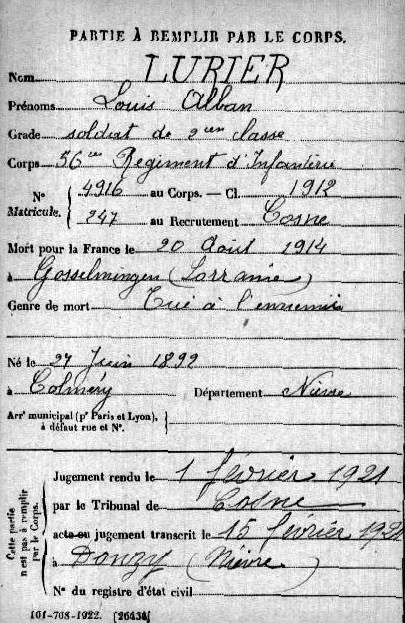 PARTIE À REMPLIR PAR LE CORPS.
Nom LURIER
Prénoms Louis Alban
Grade soldat de 2ème classe
Corps 56ème Régiment d'Infanterie
N° Matricule. { 4916 au Corps. — Cl. 1912
247 au Recrutement Cosne
Mort pour la France le 20 Août 1914
à Gosselmingen (Lorraine)
Genre de mort Tué à l'ennemi
Né le 27 Juin 1892
à Colméry Département Nièvre
Arr' municipal (p' Paris et Lyon), à défaut rue et N°.
Cette partie n'est pas à remplir par le Corps.
Jugement rendu le 1 février 1921
par le Tribunal de Cosne
acte ou jugement transcrit le 15 février 1921
à Donzy (Nièvre)
N° du registre d'état civil
101-708-1922. [26434]